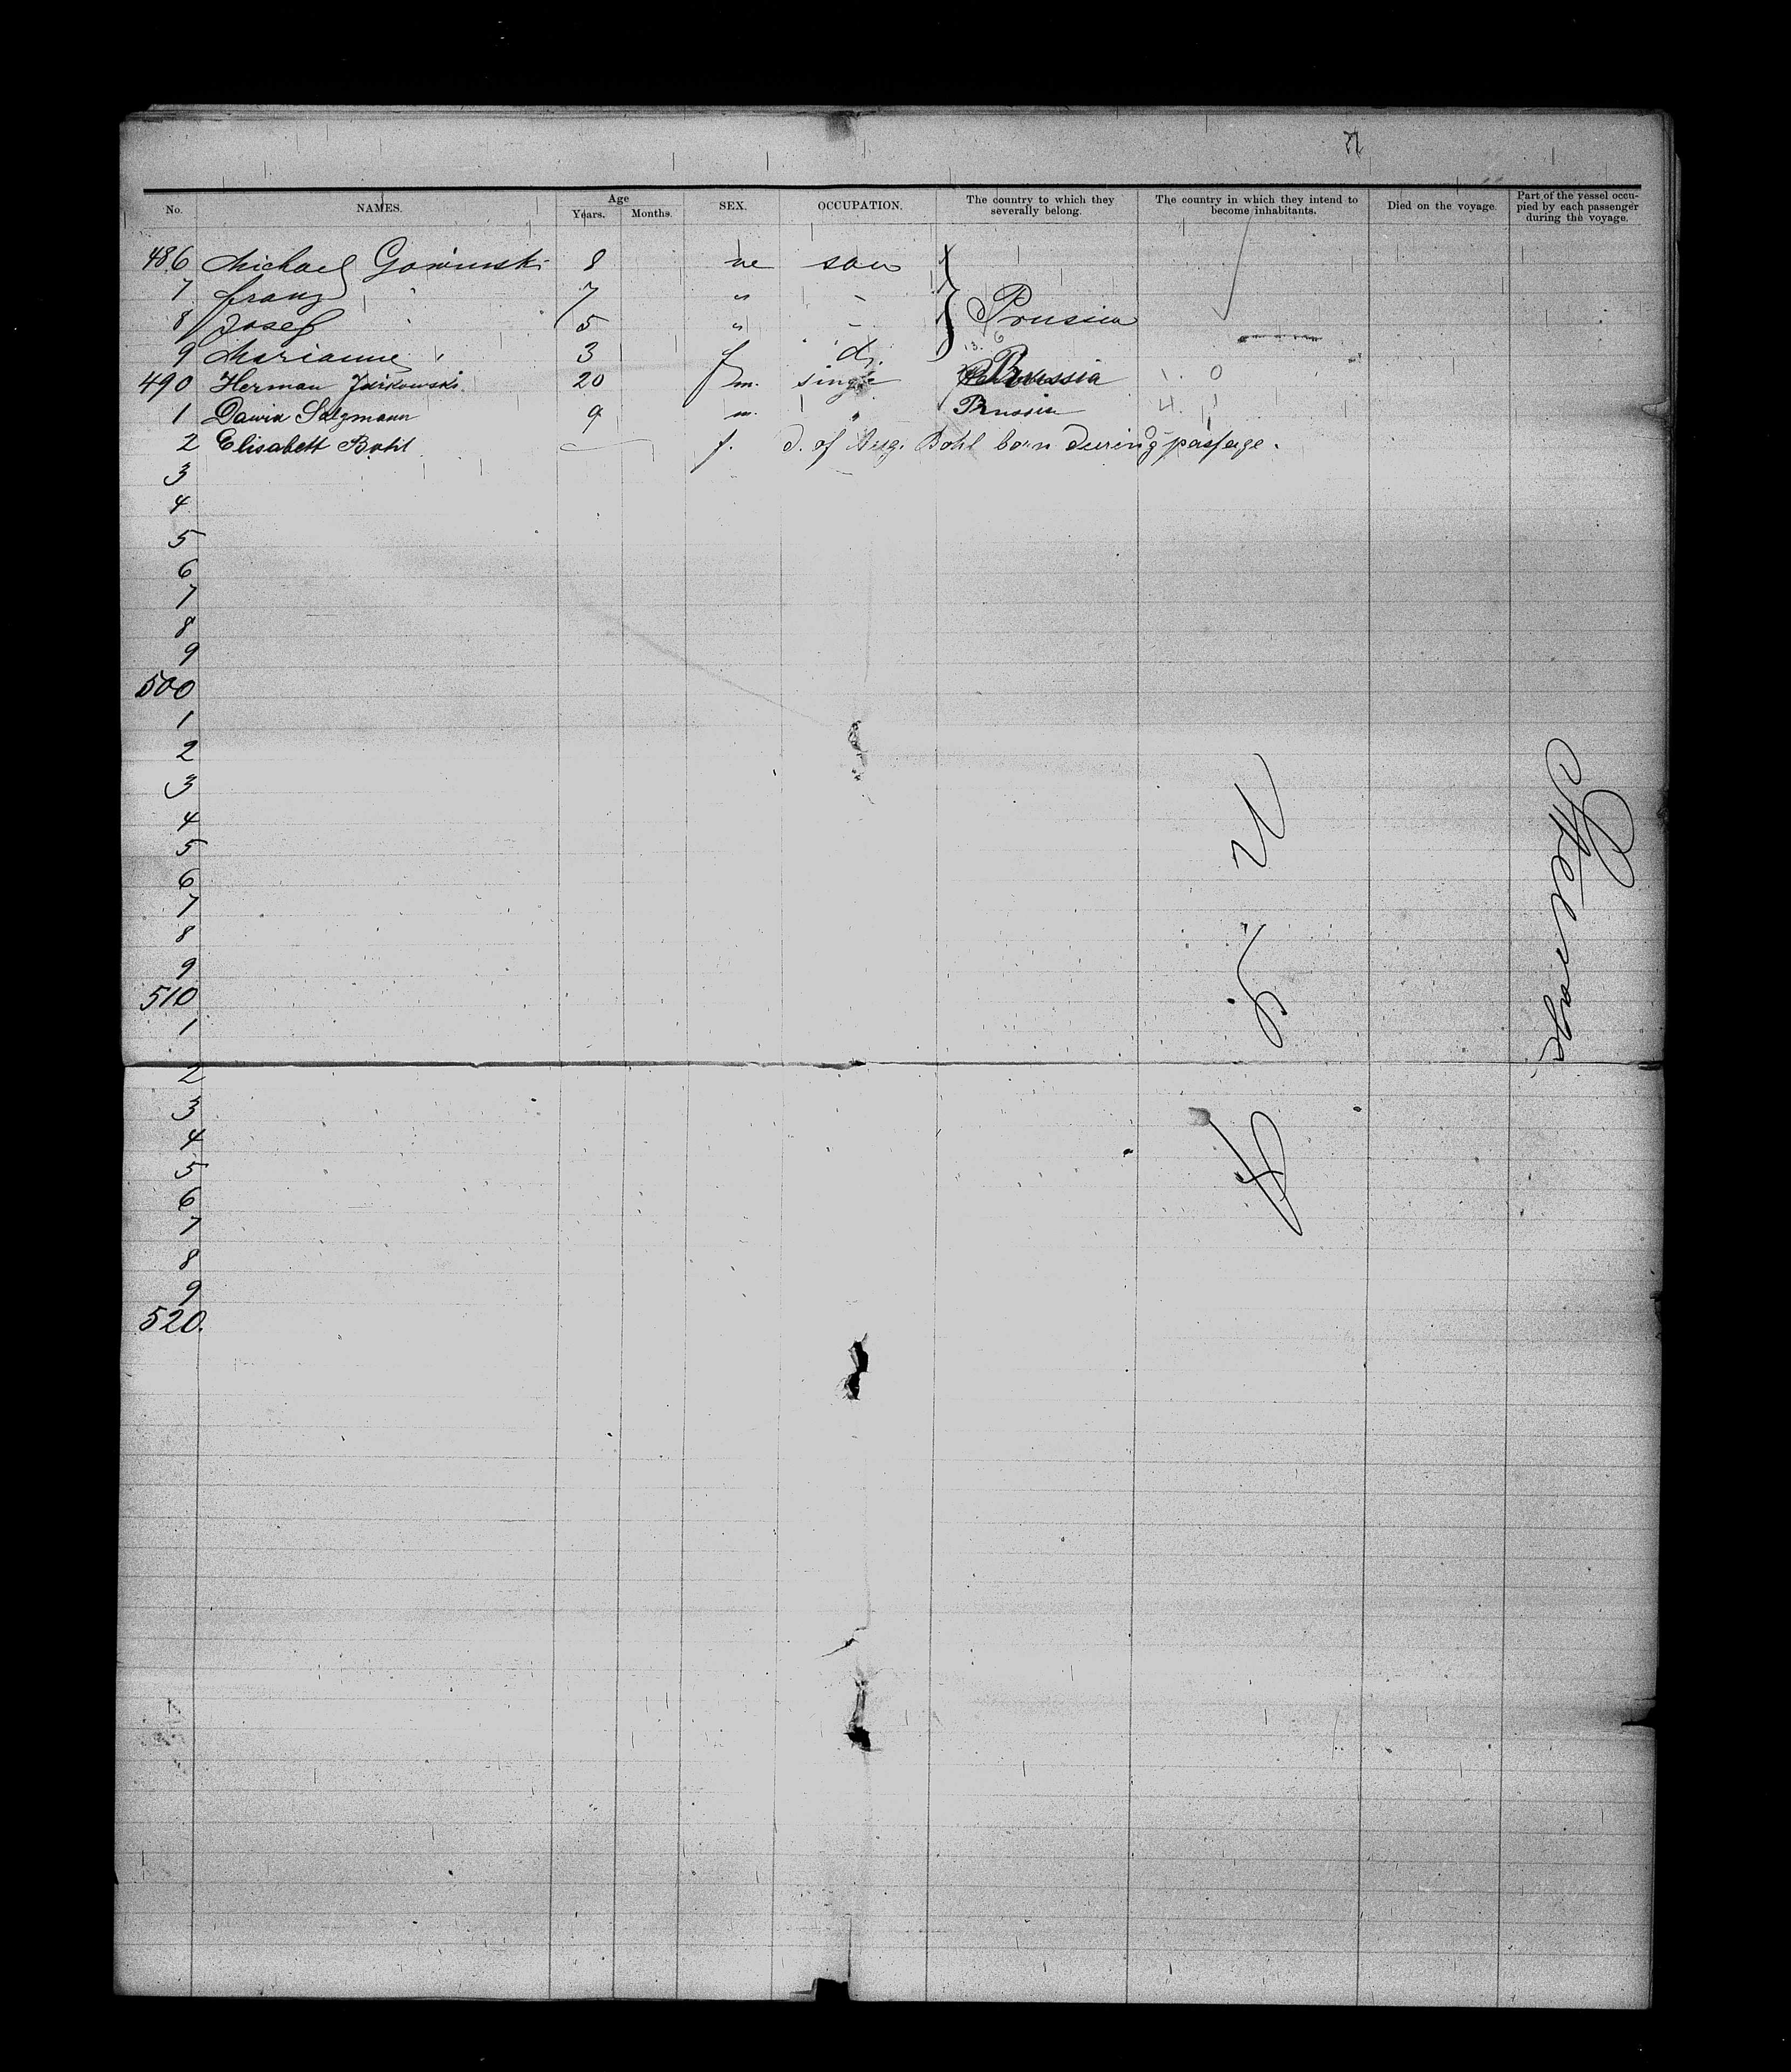 No. NAMES. Age Years. Months. SEX. OCCUPATION. The country to which they severally belong. The country in which they intend to become inhabitants. Died on the voyage. Part of the vessel occupied by each passenger during the voyage.
486 Michael 8 m son
7 Franz 7 " "
8 Josef 5 " " Prussia
9 Marianne 3 f d.
490 Herman 20 m. single Prussia
1 David Salzmann 9 m. " Prussia
2 Elisabeth Bohl — f. d. of Aug. Bohl born during passage.
3
4
5
6
7
8
9
500
1
2
3
4
5
6
7
8
9
510
1
2
3
4
5
6
7
8
9
520.
U. S. A
Steerage